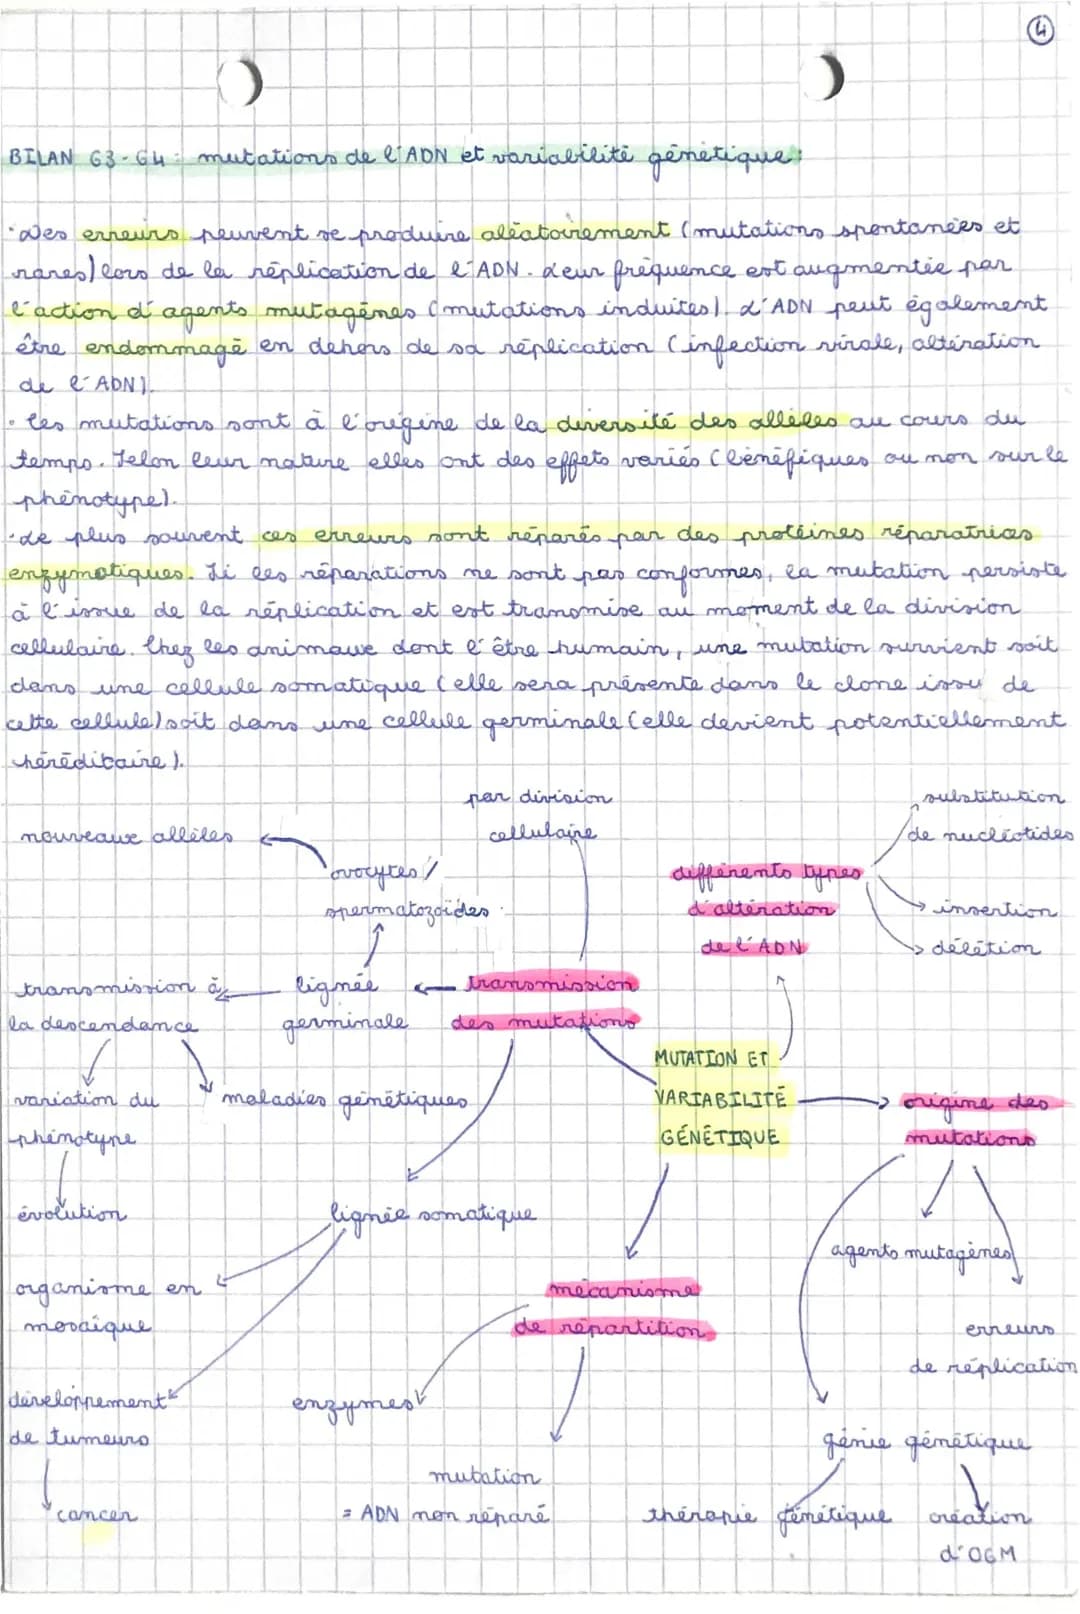 4
BILAN G3-G4 : mutations de l'ADN et variabilité génétique :
· Des erreurs peuvent se produire aléatoirement (mutations spontanées et
rares) lors de la réplication de l'ADN. Leur fréquence est augmentée par
l'action d'agents mutagènes (mutations induites). L'ADN peut également
être endommagé en dehors de sa réplication (infection virale, altération
de l'ADN).
· Les mutations sont à l'origine de la diversité des allèles au cours du
temps. Selon leur nature elles ont des effets variés (bénéfiques ou non sur le
phénotype).
· Le plus souvent ces erreurs sont réparés par des protéines réparatrices
enzymatiques. Si les réparations ne sont pas conformes, la mutation persiste
à l'issue de la réplication et est transmise au moment de la division
cellulaire. Chez les animaux dont l'être humain, une mutation survient soit
dans une cellule somatique (elle sera présente dans le clone issu de
cette cellule) soit dans une cellule germinale (elle devient potentiellement
héréditaire).
par division
cellulaire
substitution
de nucléotides
nouveaux allèles
ovocytes /
spermatozoïdes
différents types
d'altération
de l'ADN
insertion
délétion
transmission à
la descendance
lignée
germinale
transmission
des mutations
MUTATION ET
VARIABILITÉ
GÉNÉTIQUE
origine des
mutations
variation du
phénotype
maladies génétiques
évolution
lignée somatique
agents mutagènes
organisme en
mosaïque
mécanisme
de répartition
erreurs
de réplication
développement
de tumeurs
enzymes
génie génétique
cancer
mutation
= ADN non réparé
thérapie génétique
création
d'OGM